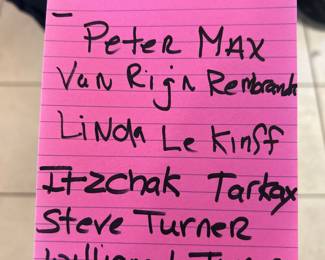 -
Peter MAX
Van Rijn Rembrandt
LiNda Le Kinff
Itzchak Tarkay
Steve Turner